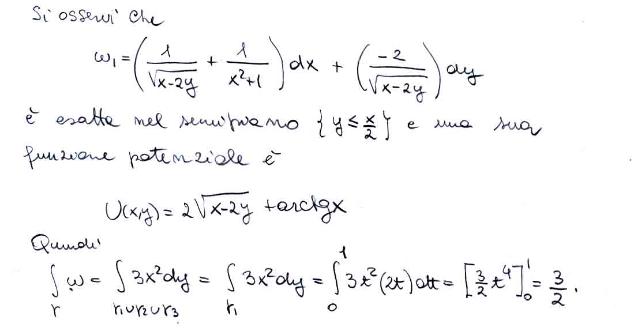 Si osservi che
ω₁ = (1/√(x-2y) + 1/(x²+1)) dx + (-2/√(x-2y)) dy
è esatta nel semipiano {y ≤ x/2} e una sua
funzione potenziale è
U(x,y) = 2√(x-2y) + arctgx
Quindi
∫_Γ ω = ∫_{Γ₁∪Γ₂∪Γ₃} 3x²dy = ∫_{Γ₁} 3x²dy = ∫₀¹ 3t²(2t)dt = [3/2 t⁴]₀¹ = 3/2.